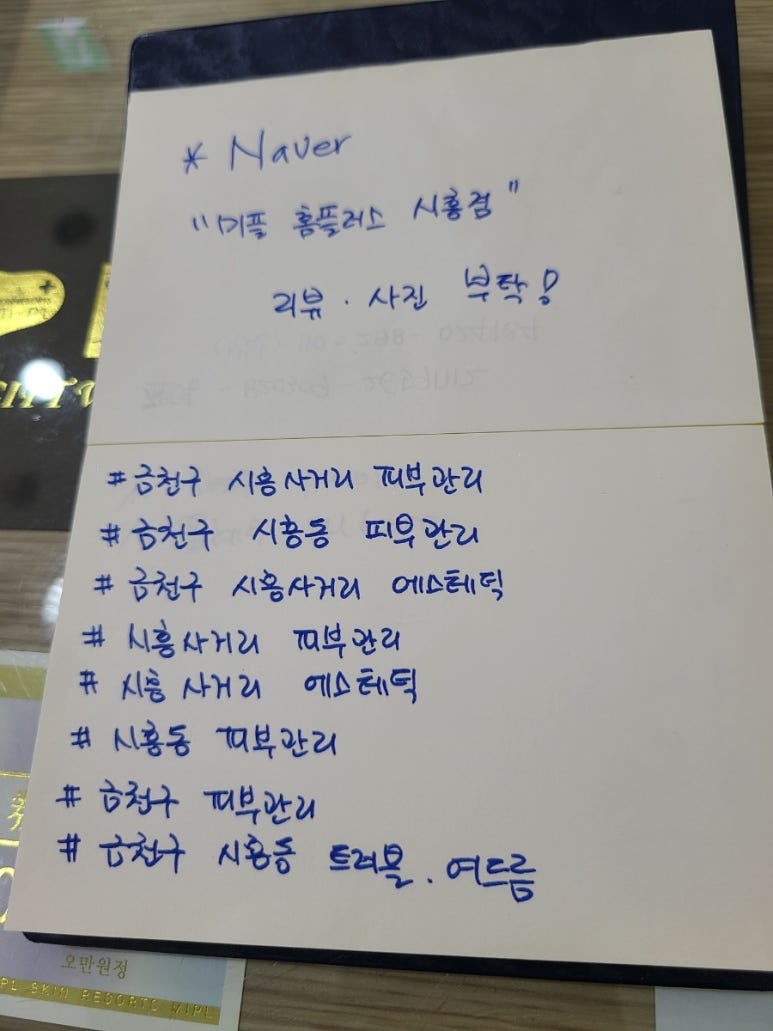 * Naver
"미플 홈플러스 시흥점"
리뷰 · 사진 부탁!
#금천구 시흥사거리 피부관리
#금천구 시흥동 피부관리
# 금천구 시흥사거리 에스테틱
# 시흥사거리 피부관리
# 시흥사거리 에스테틱
# 시흥동 피부관리
# 금천구 피부관리
# 금천구 시흥동 트러블. 여드름
오만원정
PL SKIN RESORTS WIPL